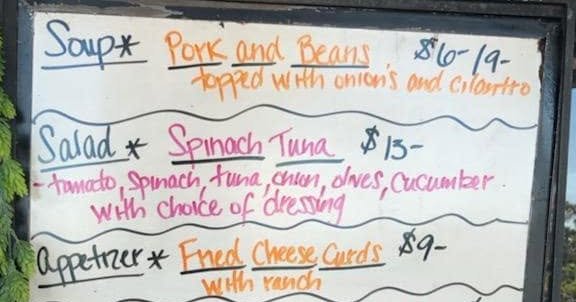 Soup* Pork and Beans $6-/9-
topped with onion's and cilantro
Salad * Spinach Tuna $13-
- tomato, spinach, tuna, onion, olives, cucumber
with choice of dressing
appetizer * Fried Cheese Curds $9-
with ranch